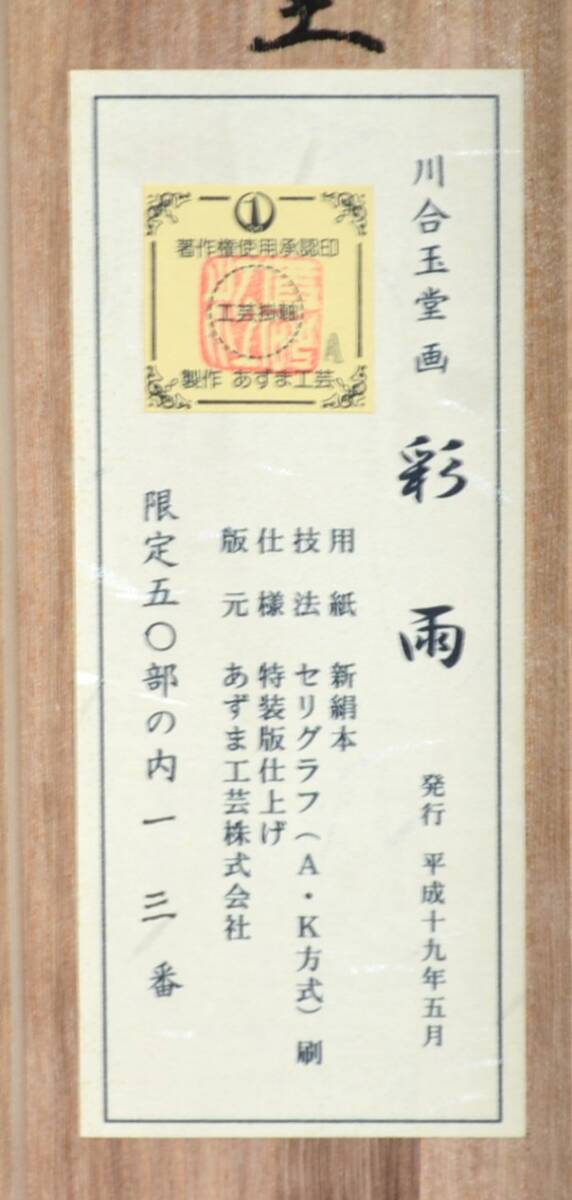 川合玉堂画 彩雨 発行 平成十九年五月
用紙 新絹本
技法 セリグラフ(A・K方式)刷
仕様 特装版仕上げ
版元 あずま工芸株式会社
限定五〇部の内一三番
1
著作権使用承認印
工芸掛軸
A
製作 あずま工芸